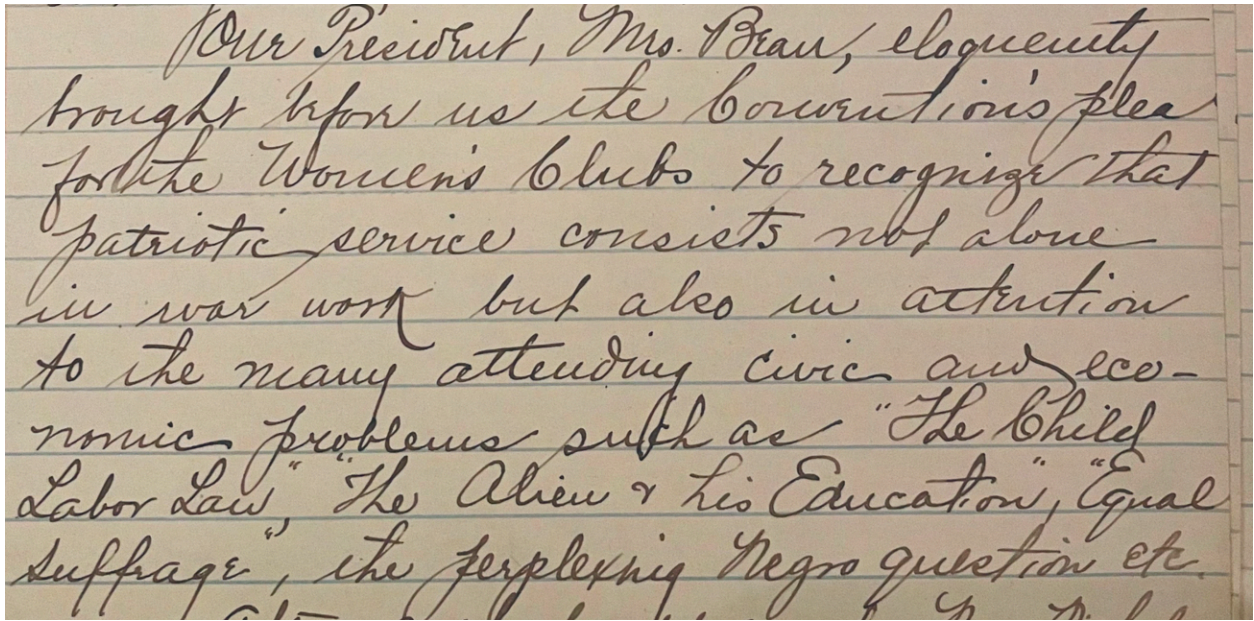 Our President, Mrs. Bean, eloquently
brought before us the Convention's plea
for the Women's Clubs to recognize that
patriotic service consists not alone
in war work but also in attention
to the many attending civic and eco-
nomic problems such as "The Child
Labor Law", "The Alien & his Education", "Equal
suffrage", the perplexing Negro question etc.